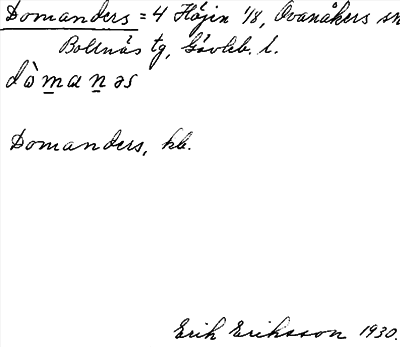 Domanders = 4 Höjin 1/8, Ovanåkers sn
Bollnäs tg, Gävleb. l.
dòmanəs
Domanders, kb.
Erik Eriksson 1930.